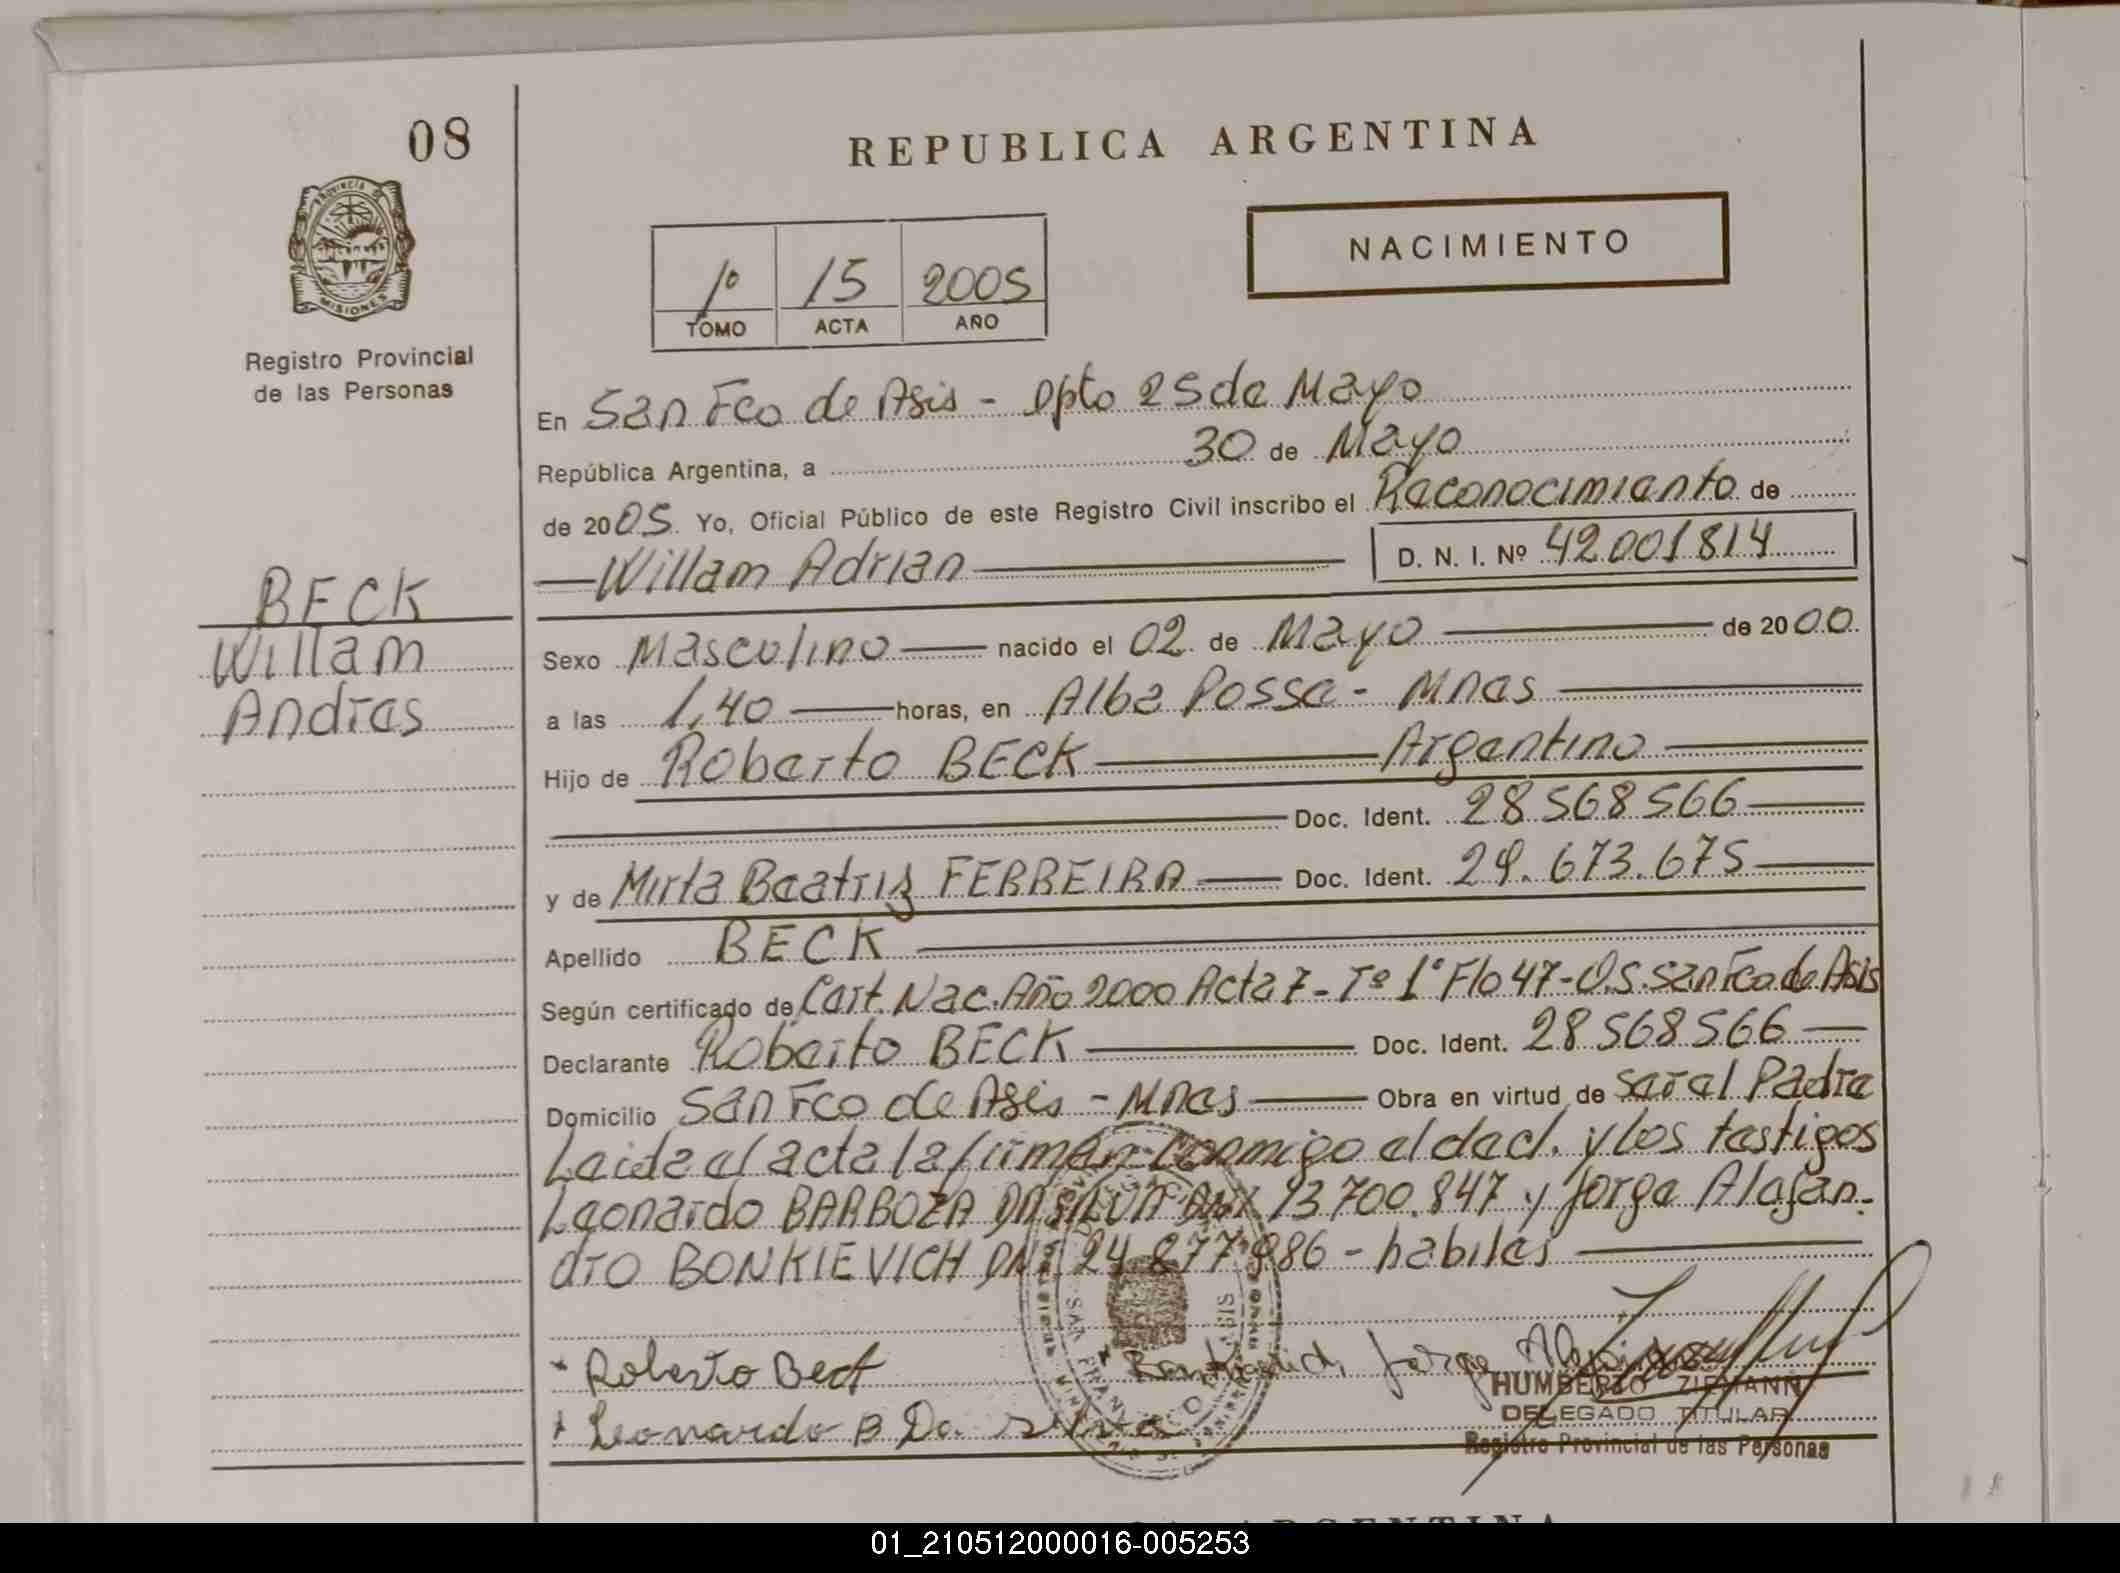 08
REPUBLICA ARGENTINA
PROVINCIA DE
MISIONES
NACIMIENTO
1º 15 2005
TOMO ACTA AÑO
Registro Provincial
de las Personas
En San Fco de Asis - Dpto 25 de Mayo
República Argentina, a 30 de Mayo
de 2005 Yo, Oficial Público de este Registro Civil inscribo el Reconocimiento de
Willam Adrian D. N. I. Nº 42.001814
BECK
Willam
Andres
Sexo Masculino nacido el 02 de Mayo de 2000
a las 1,40 horas, en Alba Posse - Mnes
Hijo de Roberto BECK Argentino
Doc. Ident. 28.568.566
y de Mirta Beatriz FERREIRA Doc. Ident. 29.673.675
Apellido BECK
Según certificado de Cert. Nac. Año 2000 Acta 7 - Tº 1º Flo 47 - O.S. San Fco de Asis
Declarante Roberto BECK Doc. Ident. 28.568.566
Domicilio San Fco de Asis - Mnes Obra en virtud de ser el Padre
Leida el acta la firman conmigo el decl. y los testigos
Leonardo BARBOZA DA SILVA DNI 13.700.847 y Jorge Alejan-
dro BONKIEVICH DNI 24.877.986 - habiles
Roberto Beck
Jorge
Leonardo B Da Silva
HUMBERTO ZIEMANN
DELEGADO TITULAR
Registro Provincial de las Personas
ARGENTINA
01_210512000016-005253